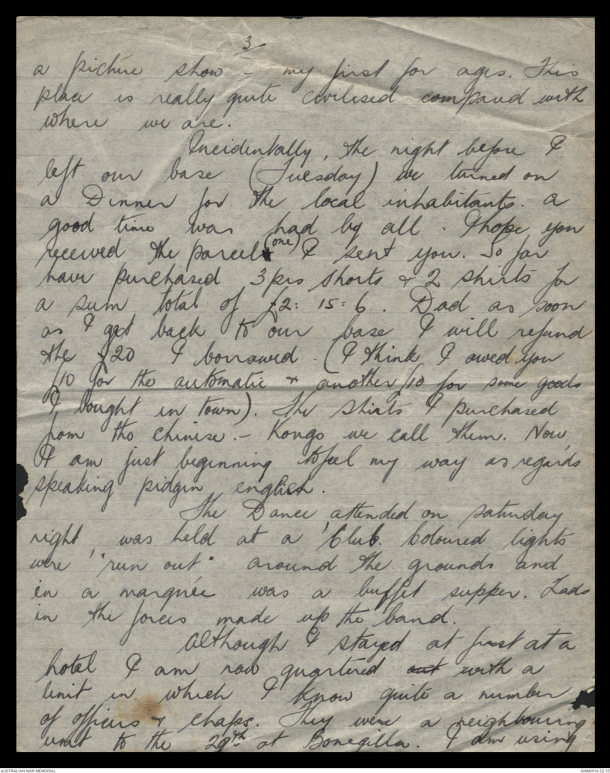 3
a picture show - my first for ages. This
place is really quite civilised compared with
where we are.
Incidentally, the night before I
left our base (Tuesday) we turned on
a Dinner for the local inhabitants. A
good time was had by all. I hope you
received the parcel (one) I sent you. So far
have purchased 3 prs shorts & 2 shirts for
a sum total of £2:15:6. Dad as soon
as I get back to our base I will refund
the £20 I borrowed. (I think I owed you
£10 for the automatic & another £10 for some goods
I bought in town). The shirts I purchased
from the chinese. - Kongs we call them. Now,
I am just beginning to feel my way as regards
speaking pidgin english.
The Dance attended on saturday
night was held at a 'Club. Coloured lights
were "run out" around the grounds and
in a marquée was a buffet supper. Lads
in the forces made up the band.
Although I stayed at first at a
hotel I am now quartered out with a
unit in which I know quite a number
of officers & chaps. They were a neighbouring
unit to the 29th at Bonegilla. I am using
AUSTRALIAN WAR MEMORIAL